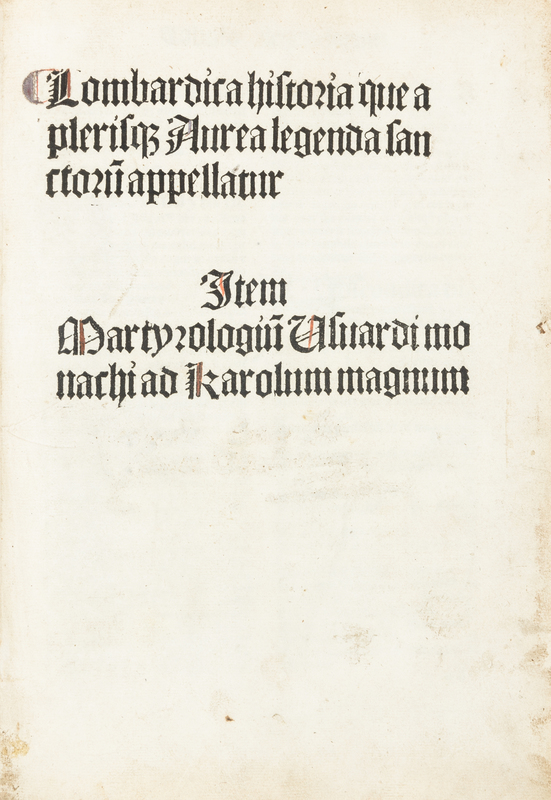 Lombardica hiſtoria que a
pleriſqꝫ Aurea legenda ſan
ctorū appellatur
Item
Martyrologiū Uſuardi mo
nachi ad Karolum magnum